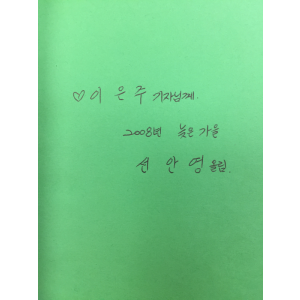 ♡이은주 기자님께.
2008년 늦은 가을
선안영 올림.